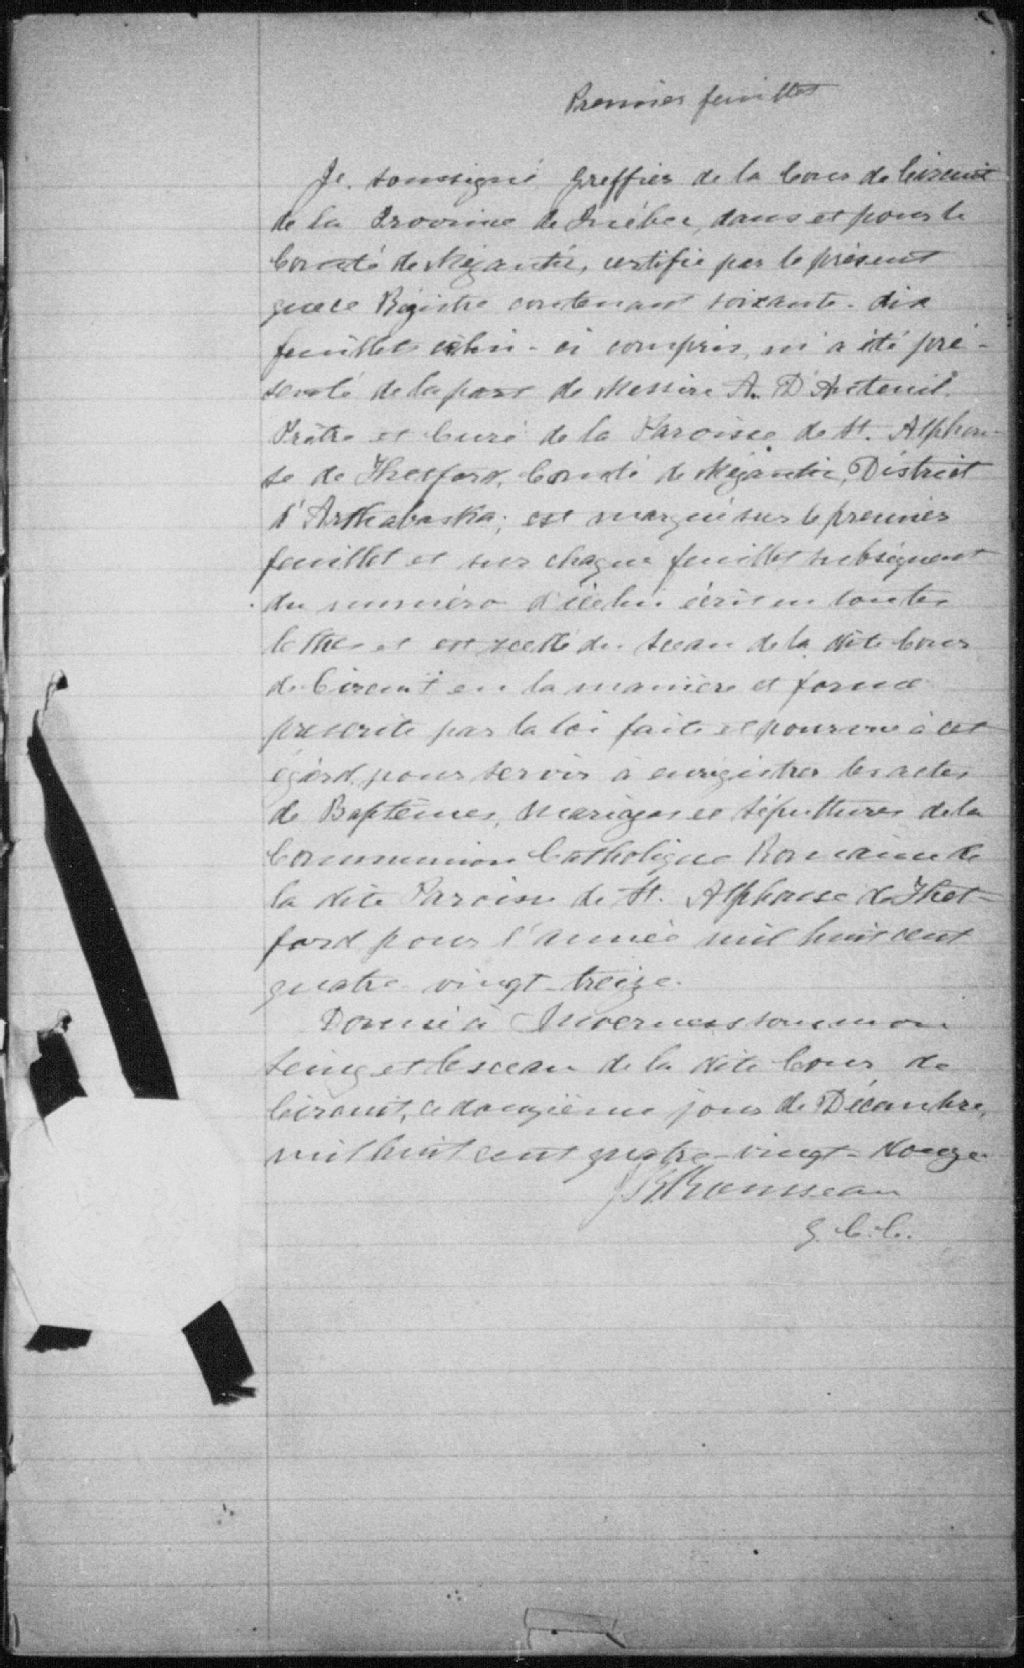 Premier feuillet
Je, soussigné Greffier de la Cour de Circuit
de la Province de Québec, dans et pour le
Comté de Mégantic, certifie par le présent
que ce Régistre contenant soixante-dix
feuillets celui-ci compris, m'a été pré-
senté de la part de Messire A. D'Auteuil
Prêtre et Curé de la Paroisse de St. Alphon-
se de Thetford, Comté de Mégantic, District
d'Arthabaska; est marqué sur le premier
feuillet et sur chaque feuillet subséquent
du numéro d'icelui écrit en toutes
lettres et est scellé du sceau de la dite Cour
de Circuit en la manière et forme
prescrite par la loi faite et pourvue à cet
égard, pour servir à enrégistrer les actes
de Baptêmes, Mariages et Sépultures de la
Communion Catholique Romaine de
la dite Paroisse de St. Alphonse de Thet-
ford pour l'année mil huit cent
quatre-vingt-treize.
Donné à Inverness sous mon
seing et le sceau de la dite Cour de
Circuit, ce douzième jour de Décembre,
mil huit cent quatre-vingt-douze.
Rousseau
G. C. C.